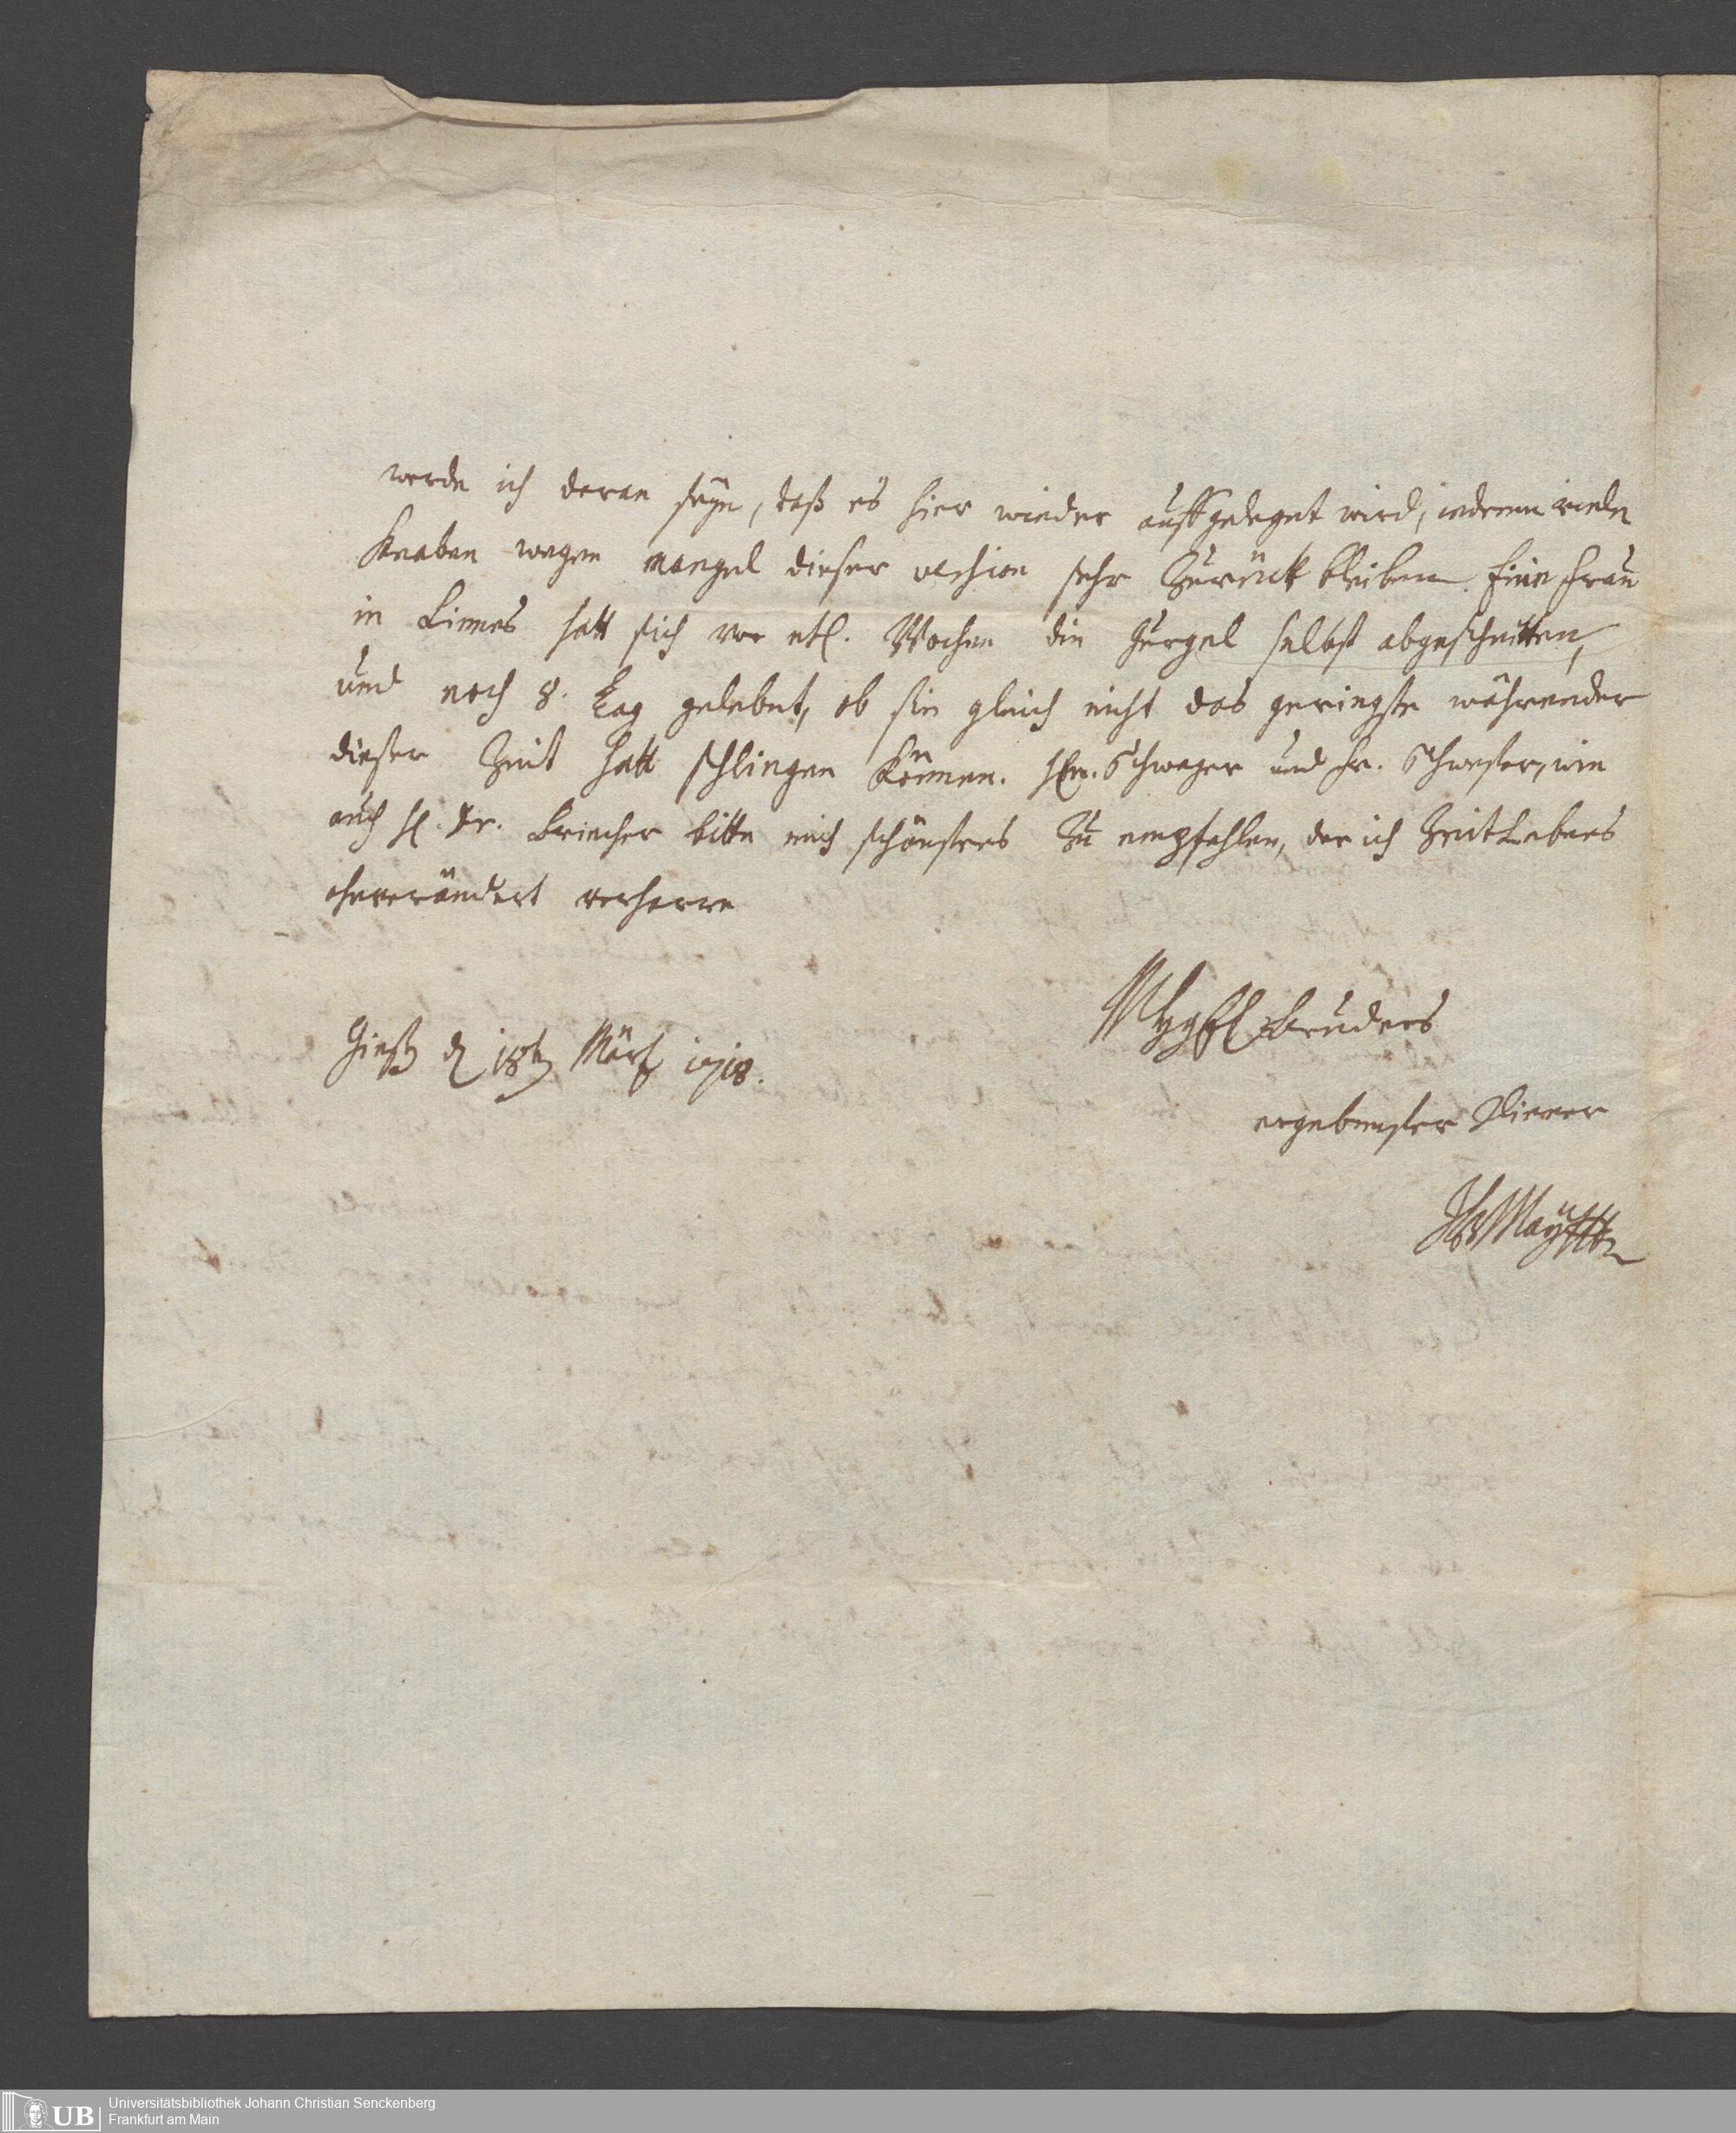 werde ich daran seyn, daß es hier wieder auffgeleget wird, indem viele
Knaben wegen mangel dieser version sehr zurück bleiben. Eine Frau
in Linnes hatt sich vor etl. Wochen die Gurgel selbst abgeschnitten,
und noch 8. Tag gelebet, ob sie gleich nicht das geringste währender
dieser Zeit hatt schlingen können. HEn. Schwager und Fr. Schwester, wie
auch H. Dr. bitte mich schönstens zu empfehlen, der ich Zeit Lebens
ohnverändert verharre
Bruders
Gieß d 18t Märtz 1718.
ergebenster Diener
May
UB
Universitätsbibliothek Johann Christian Senckenberg
Frankfurt am Main